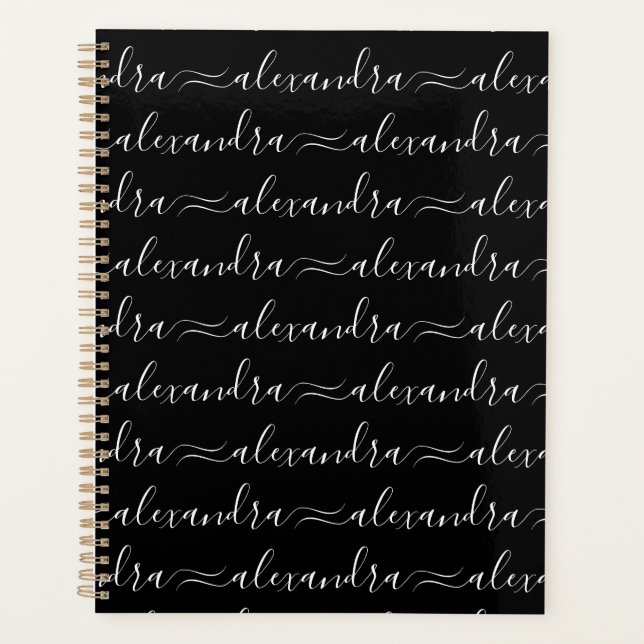 dra alexandra alex
alexandra alexandra
dra alexandra alex
alexandra alexandra
dra alexandra alex
alexandra alexandra
dra alexandra alex
alexandra alexandra
dra alexandra alex